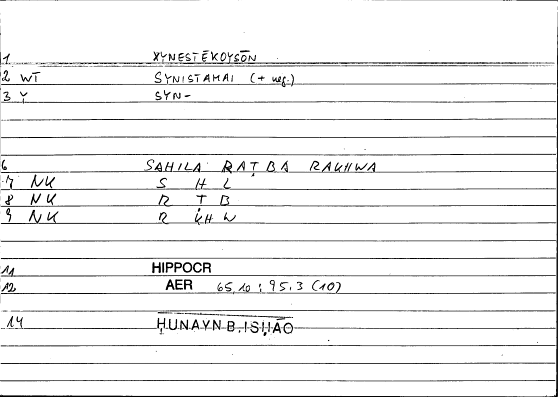 1 XYNESTĒKOYSŌN
2 WT SYNISTAMAI (+ neg.)
3 Y SYN-
6 SAHILA RAṬBA RAKHWA
7 NK S H L
8 NK R Ṭ B
9 NK R KH W
11 HIPPOCR
12 AER 65,10 ; 95.3 (10)
14 ḤUNAYN B. ISḤĀQ